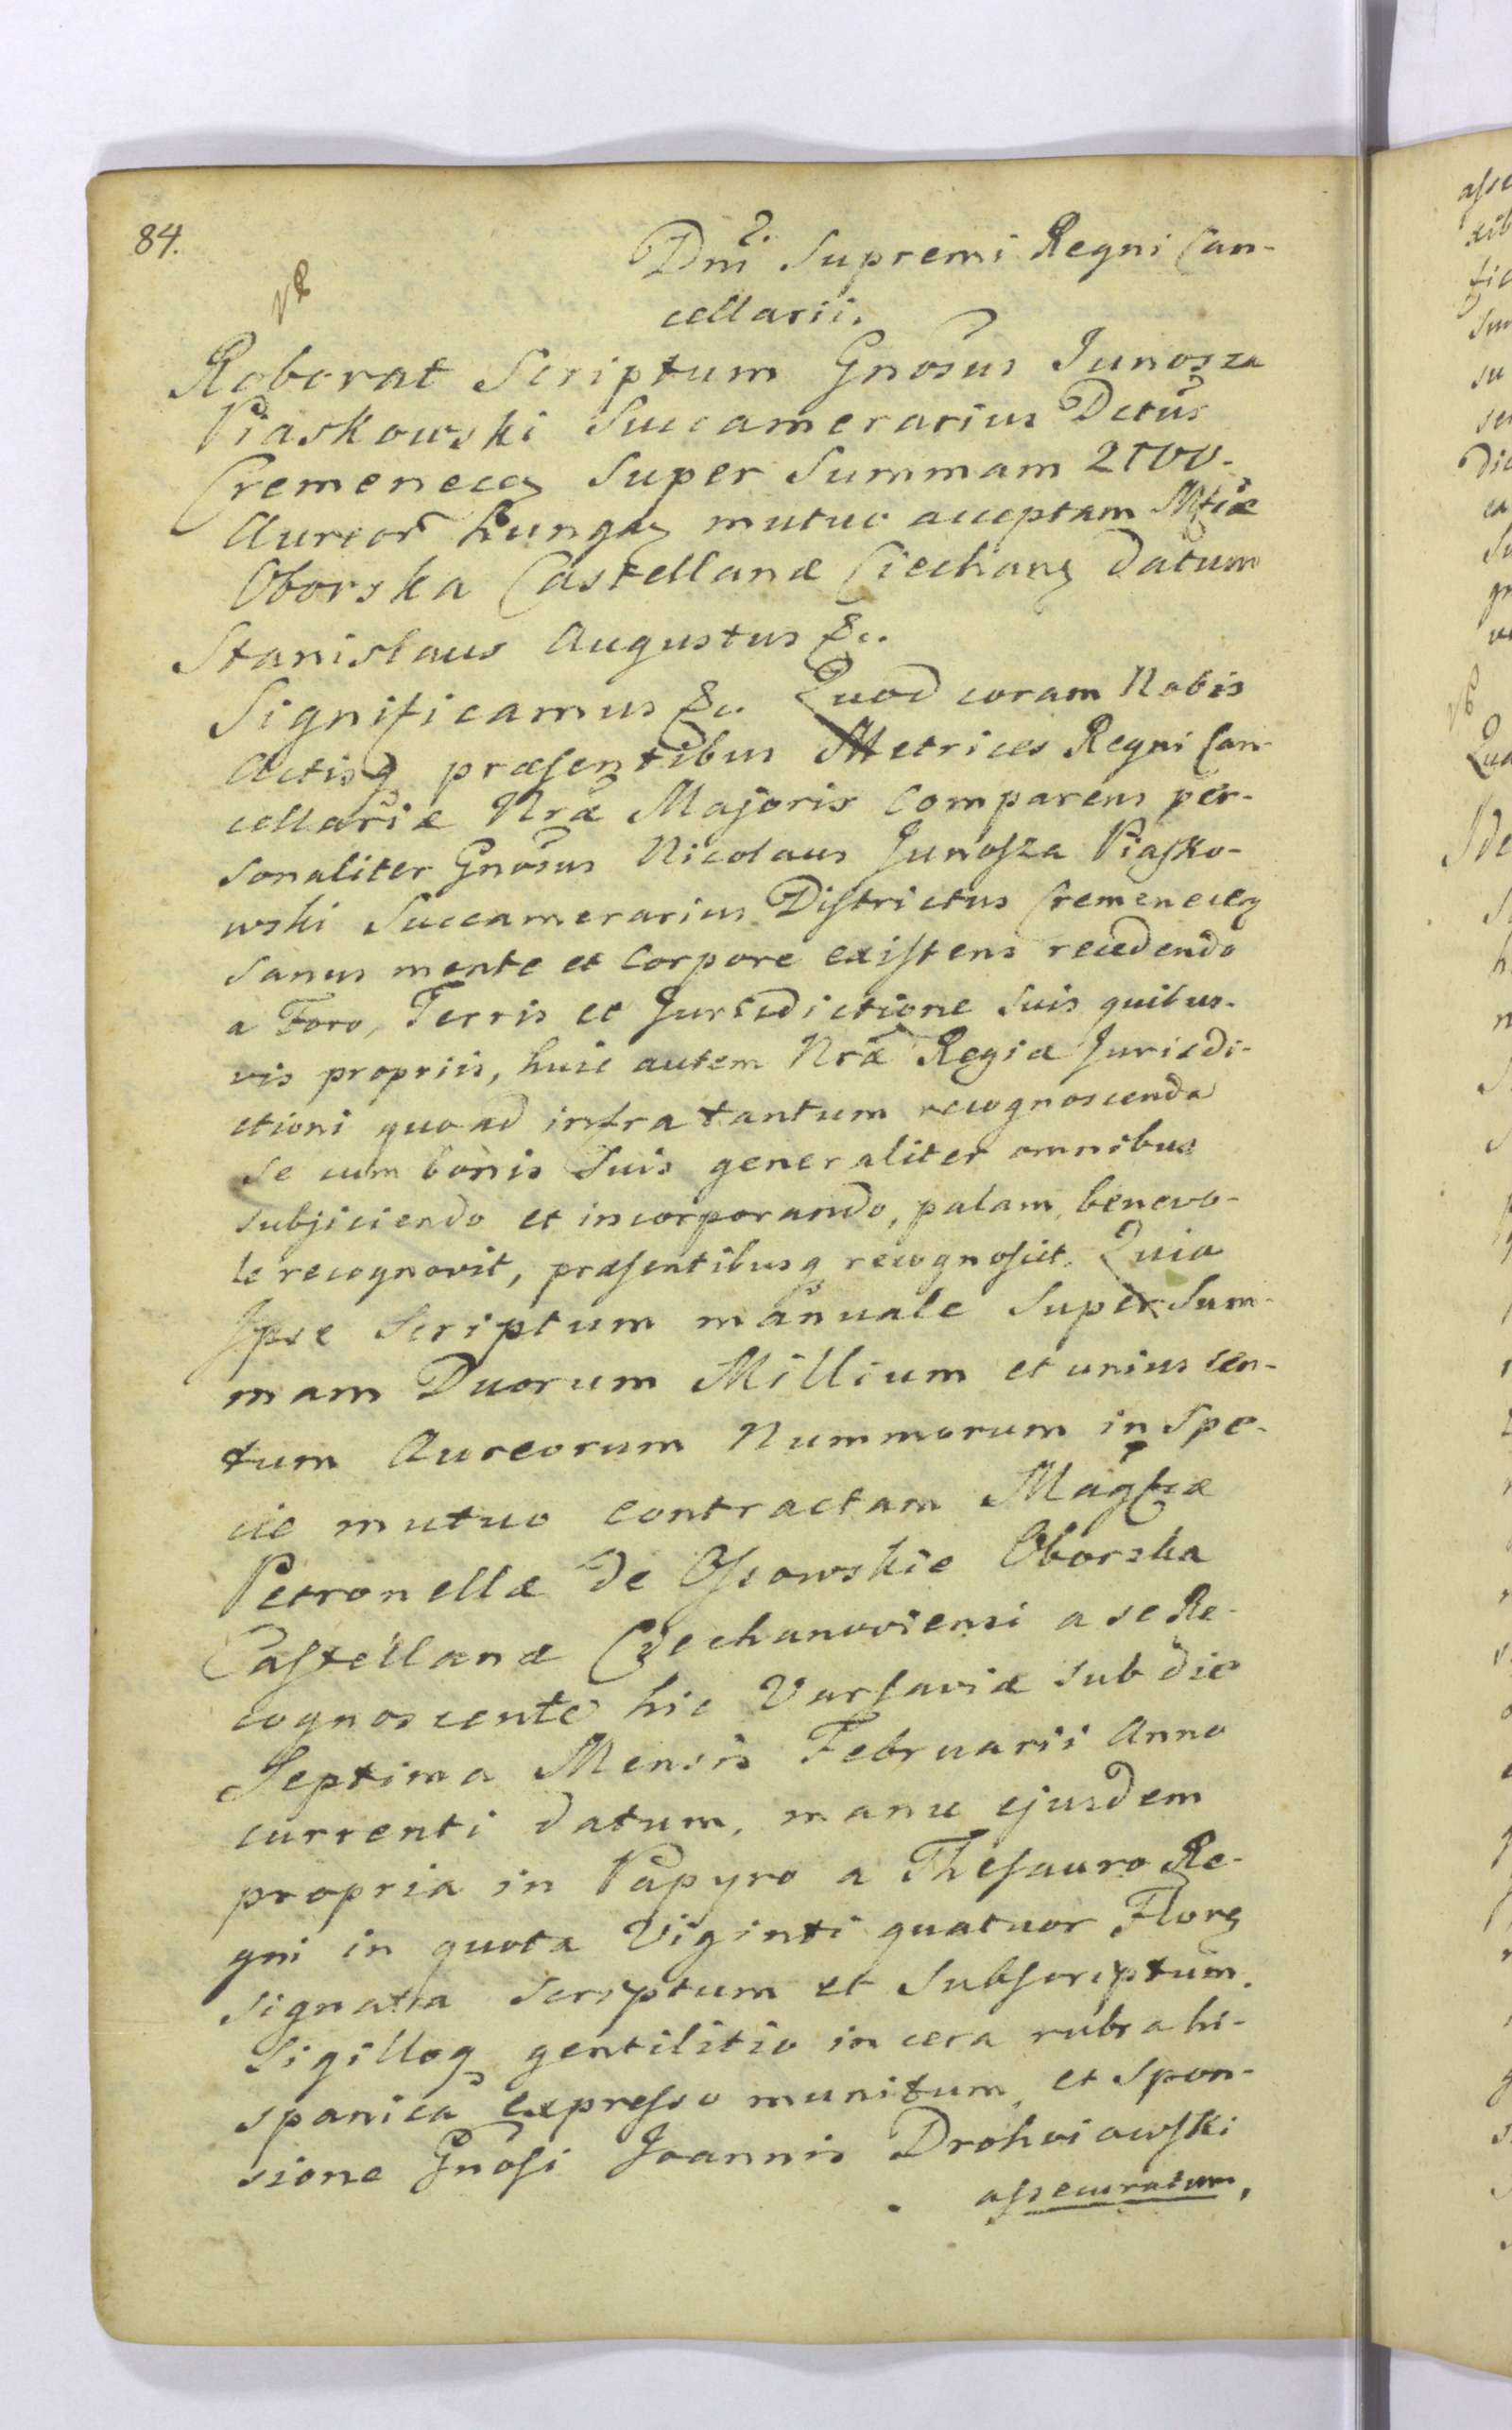 84.
Dni Supremi Regni Can-
cellarii.
Roborat Scriptum Gnosus Junosza
Piaskowski Succamerarius Dctus
Cremenecen Super Summam 2100.
Aureor hungar mutuo acceptam Mfcæ
Oborska Castellanæ Ciechan datum
Stanislaus Augustus &c.
Significamus &c. Quod coram Nobis
Actisq præsentibus Metrices Regni Can-
cellariæ Nræ Majoris Comparens per-
sonaliter Gnosus Nicolaus Junosza Piasko-
wski Succamerarius Districtus Cremenecen
Sanus mente et Corpore existens recedendo
a Foro, Terris et Jurisdictione Suis quibus-
vis propriis, huic autem Nræ Regiæ Jurisdi-
ctioni quoad infra tantum recognoscenda
Se cum bonis Suis generaliter omnibus
subjiciendo et incorporando, palam, benevo-
le recognovit, præsentibusq recognoscit. Quia
Ipse Scriptum manuale Super Sum-
mam Duorum Millium et unius cen-
tum Aureorum Nummorum in Spe-
cie mutuo contractam Magfcæ
Petronellæ de Ossowskie Oborska
Castellanæ Czechanoviensi a se Re-
cognoscente hic Varsaviæ sub die
Septima Mensis Februarii Anno
currenti datum, manu ejusdem
propria in Papyro a Thesauro Re-
gni in quota Viginti quatuor Flor
signata scriptum et Subscriptum.
Sigilloq gentilitio in cera rubra hi-
spanica expresso munitum, et Spon-
sione Gnosi Joannis Drohoiowski
assecuratum,